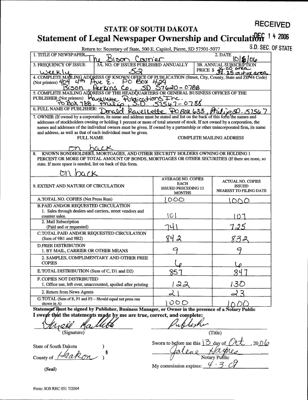 RECEIVED
DEC 14 2006
S.D. SEC. OF STATE
STATE OF SOUTH DAKOTA
Statement of Legal Newspaper Ownership and Circulation
Return to: Secretary of State, 500 E. Capitol, Pierre, SD 57501-5077
1. TITLE OF NEWSPAPER
The Bison Courier
2. DATE
3. FREQUENCY OF ISSUE
weekly
3A. NO. OF ISSUES PUBLISHED ANNUALLY
52
3B. ANNUAL SUBSCRIPTION PRICE $
4. COMPLETE MAILING ADDRESS OF KNOWN OFFICE OF PUBLICATION (Street, City, County, State and ZIP+4 Code)
(Not printers)
PO Box 429
Bison, Perkins Co., SD 57620-0788
5. COMPLETE MAILING ADDRESS OF THE HEADQUARTERS OR GENERAL BUSINESS OFFICES OF THE
PUBLISHER
Ravellette Publications
PO Box 788, Philip, SD 57567-0788
6. FULL NAME OF PUBLISHER: Donald Ravellette, PO Box 688, Philip SD 57567
7. OWNER (If owned by a corporation, its name and address must be stated and list on the back of this form the names and
addresses of stockholders owning or holding 1 percent or more of total amount of stock. If not owned by a corporation, the
names and addresses of the individual owners must be given. If owned by a partnership or other unincorporated firm, its name
and address, as well as that of each individual must be given.
FULL NAME
COMPLETE MAILING ADDRESS
on back
8. KNOWN BONDHOLDERS, MORTGAGES, AND OTHER SECURITY HOLDERS OWNING OR HOLDING 1
PERCENT OR MORE OF TOTAL AMOUNT OF BONDS, MORTGAGES OR OTHER SECURITIES (If there are none, so
state. If more space is needed, list on back of this form.
on back
9. EXTENT AND NATURE OF CIRCULATION
AVERAGE NO. COPIES EACH ISSUED PRECEDING 12 MONTHS
ACTUAL NO. COPIES ISSUED NEAREST TO FILING DATE
A. TOTAL NO. COPIES (Net Press Run) 1000 1000
B. PAID AND/OR REQUESTED CIRCULATION
1. Sales through dealers and carriers, street vendors and counter sales 101 107
2. Mail Subscription (Paid and or requested) 741 725
C. TOTAL PAID AND/OR REQUESTED CIRCULATION (Sum of 9B1 and 9B2) 842 832
D. FREE DISTRIBUTION
1. BY MAIL, CARRIER OR OTHER MEANS 9 9
2. SAMPLES, COMPLIMENTARY AND OTHER FREE COPIES 6 6
E. TOTAL DISTRIBUTION (Sum of C, D1 and D2) 857 847
F. COPIES NOT DISTRIBUTED
1. Office use, left over, unaccounted, spoiled after printing 122 130
2. Return from News Agents 21 23
G. TOTAL (Sum of E, F1 and F2 - Should equal net press run shown in A) 1000 1000
Statement must be signed by Publisher, Business Manager, or Owner in the presence of a Notary Public
I swear that the statements made by me are true, correct, and complete:
Publisher
(Signature)
(Title)
State of South Dakota )
County of Haakon )
§
Sworn to before me this 13 day of Oct, 2006
Notary Public
(Seal)
My commission expires: 4-3-09
Form: SOS REC 051 7/2004